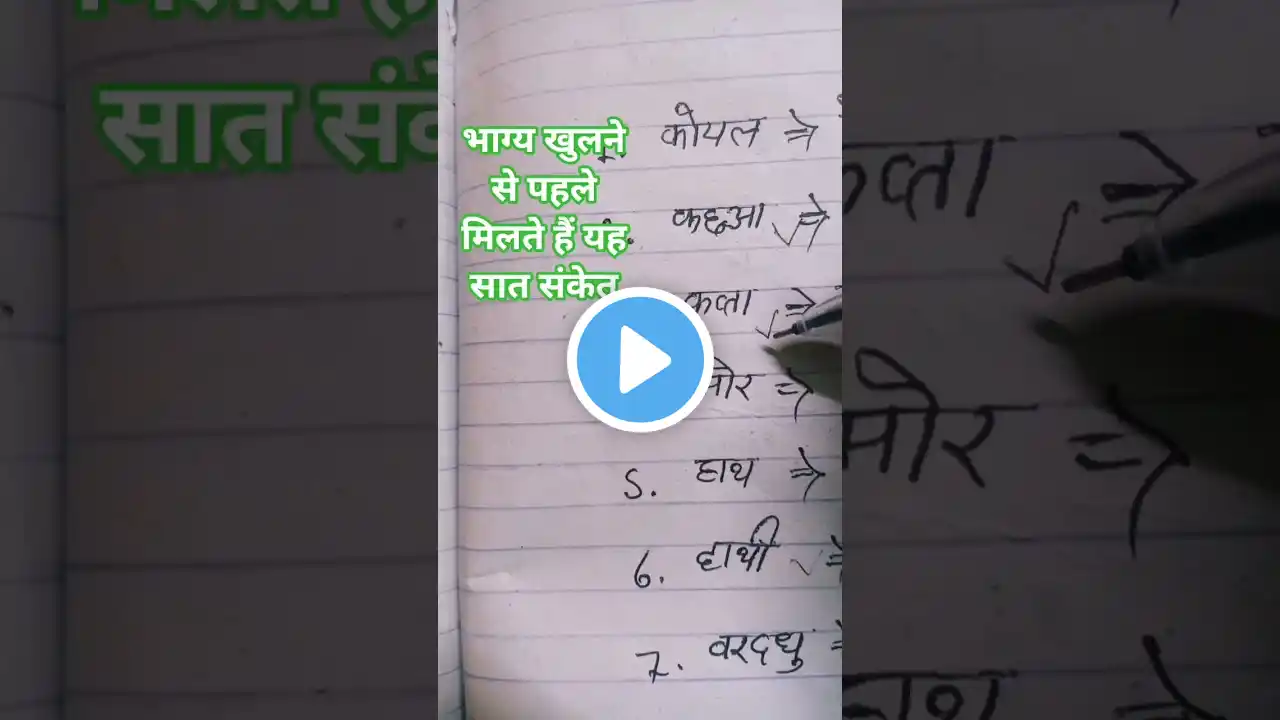 भाग्य खुलने
से पहले
मिलते हैं यह
सात संकेत
कोयल ⇒
कछुआ ✓⇒
मोर ⇒
5. हाथ ⇒
6. हाथी ✓ ⇒
7. वरदधु ⇒